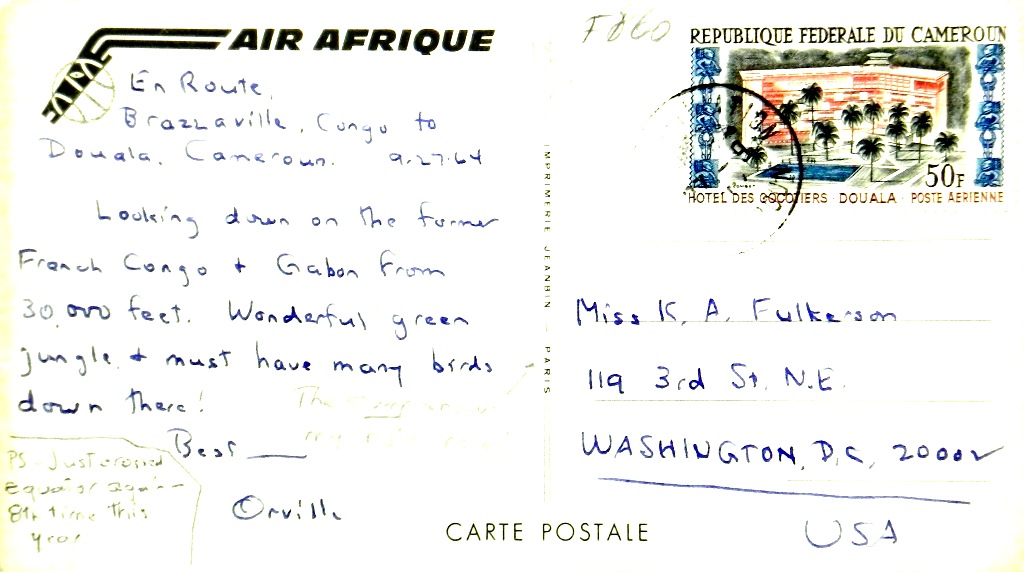 AIR AFRIQUE
En Route,
Brazzaville, Congo to
Douala, Cameroun. 9.27.64
Looking down on the former
French Congo + Gabon from
30,000 feet. Wonderful green
jungle, + must have many birds
down there!
Best
Orville
PS - Just crossed
Equator again -
8th time this
year
IMPRIMERIE JEANBIN - PARIS
CARTE POSTALE
F860
REPUBLIQUE FEDERALE DU CAMEROUN
50F
HOTEL DES COCOTIERS · DOUALA · POSTE AERIENNE
Miss K. A. Fulkerson
119 3rd St. N.E.
WASHINGTON, D.C. 20002
USA